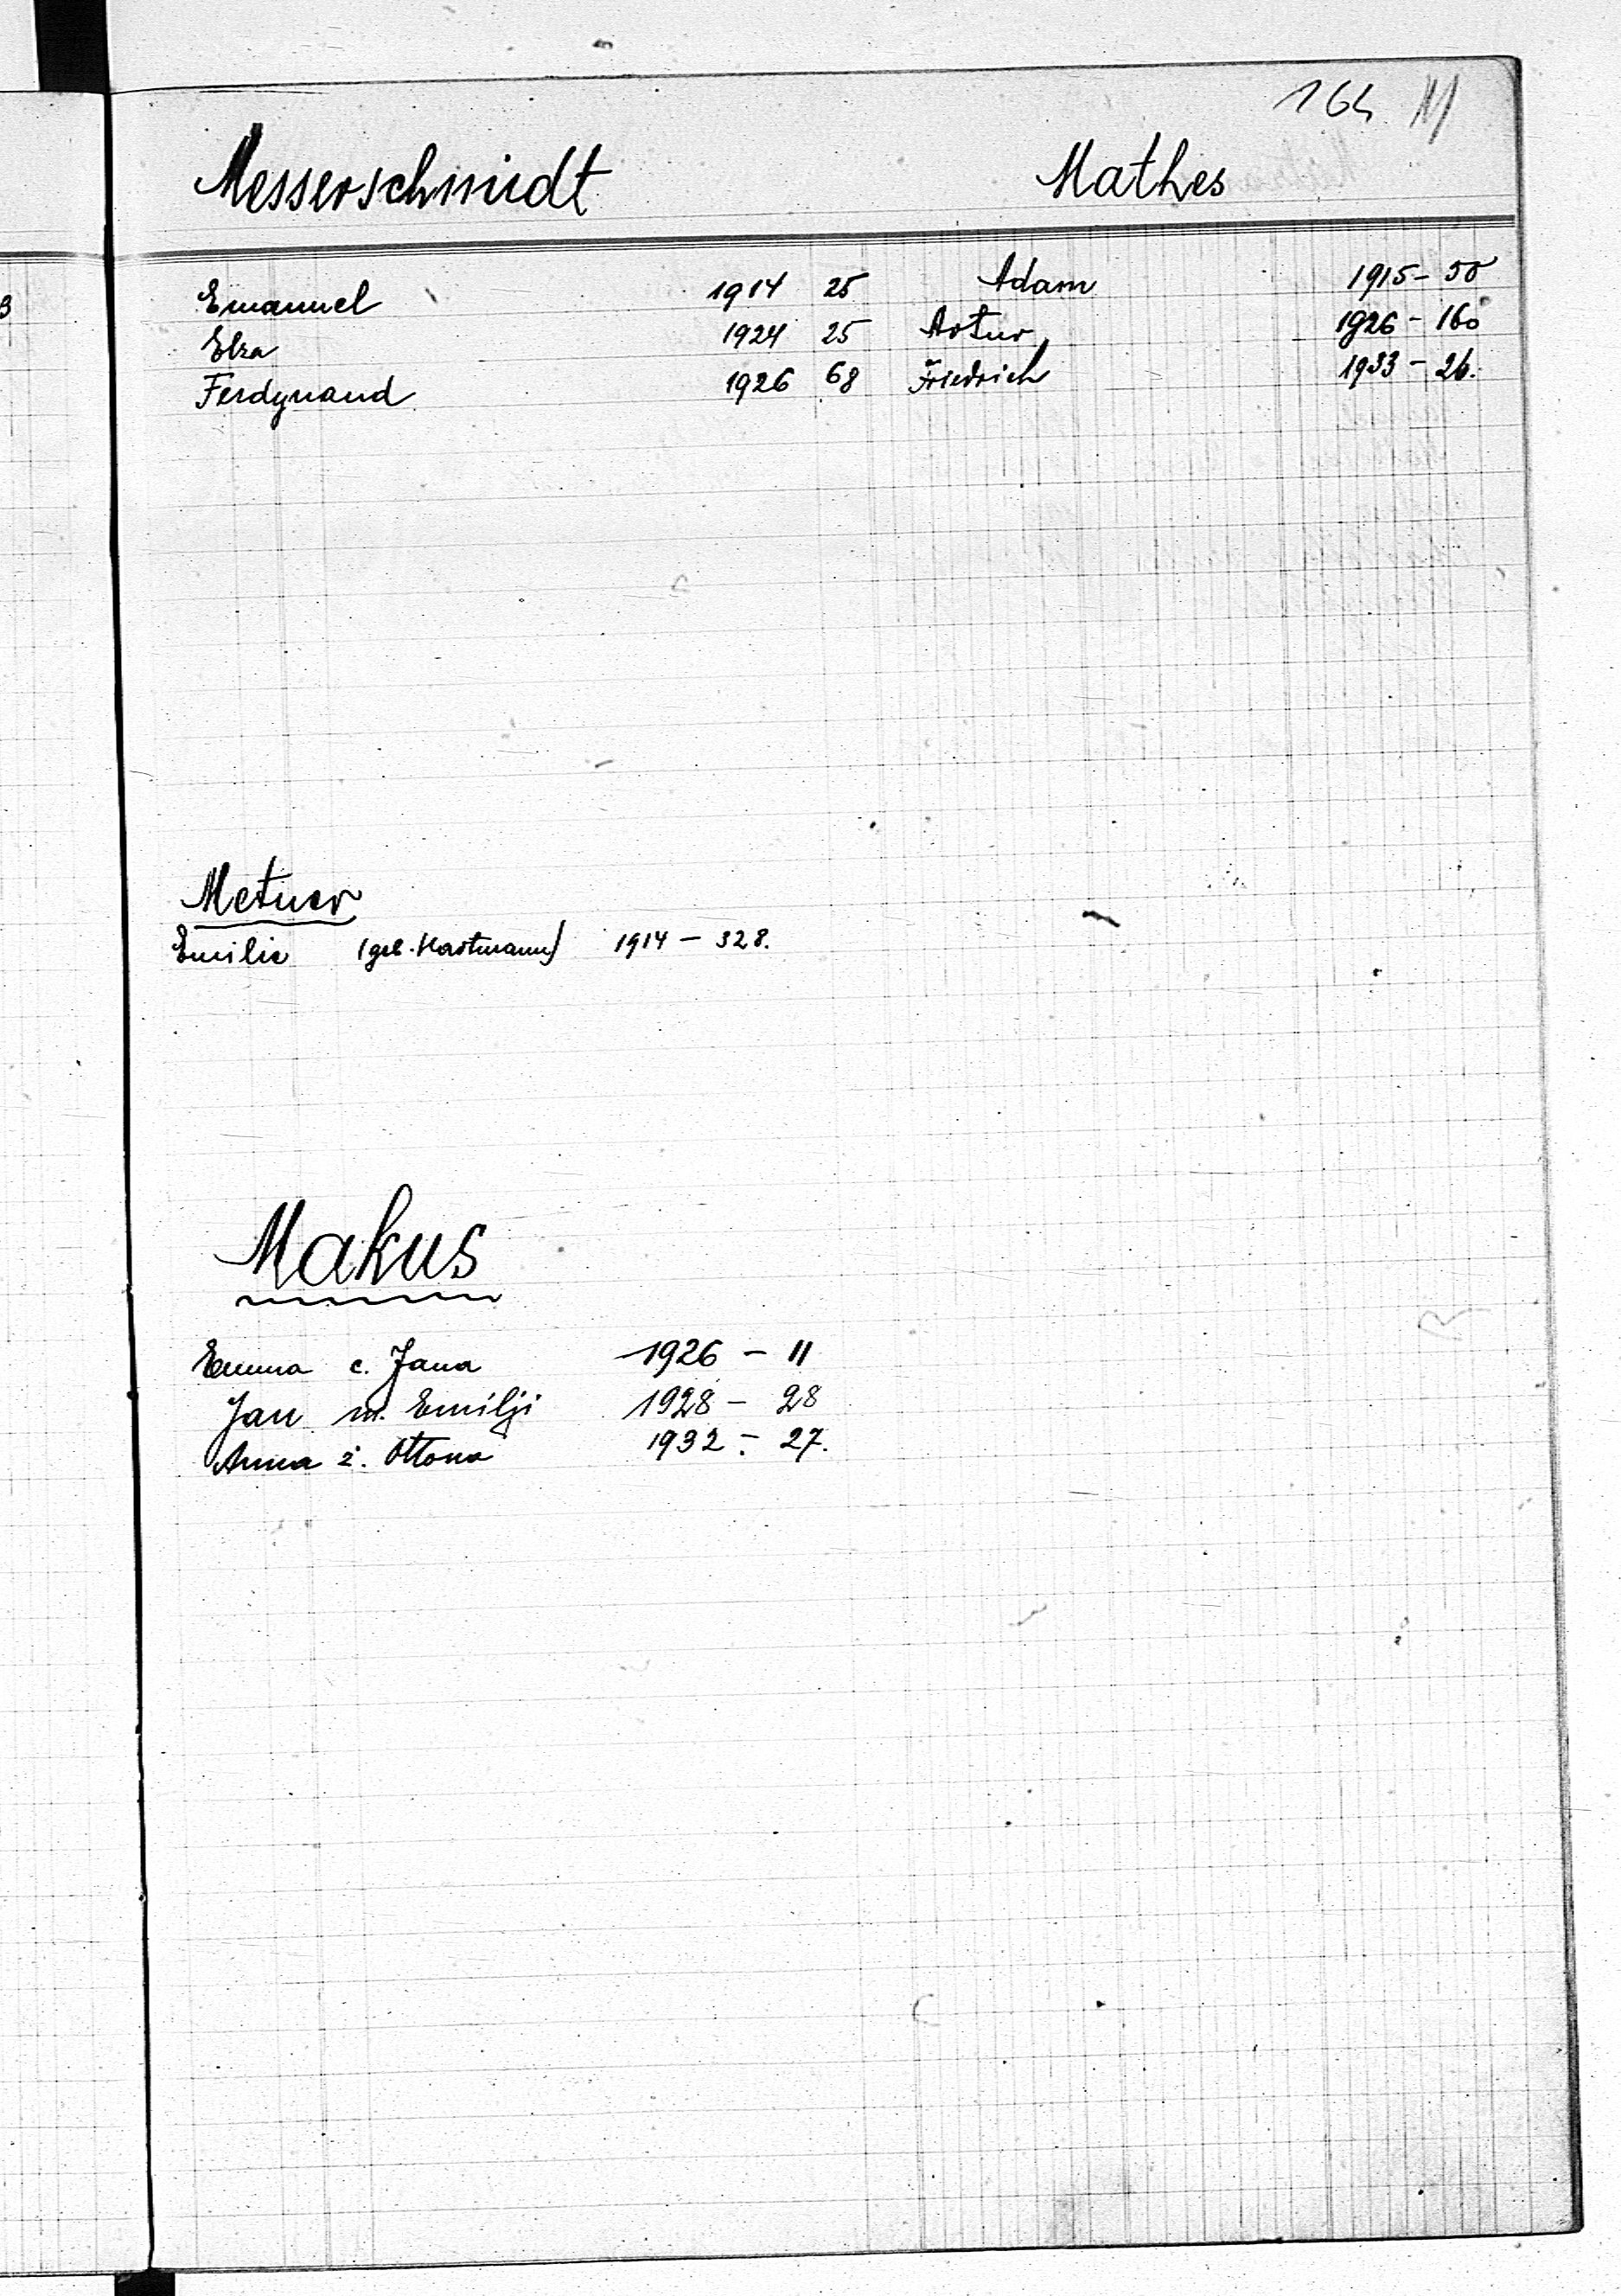 164 M
Messerschmidt
Emanuel 1914 25
Elza 1924 25
Ferdynand 1926 68
Mathes
Adam 1915 - 50
Artur 1926 - 160
Friedrich 1933 - 26.
Metner
Emilie (geb. Hartmann) 1914 - 328.
Makus
Emma c. Jana 1926 - 11
Jan m. Emilji 1928 - 28
Anna ż. Ottona 1932 - 27.